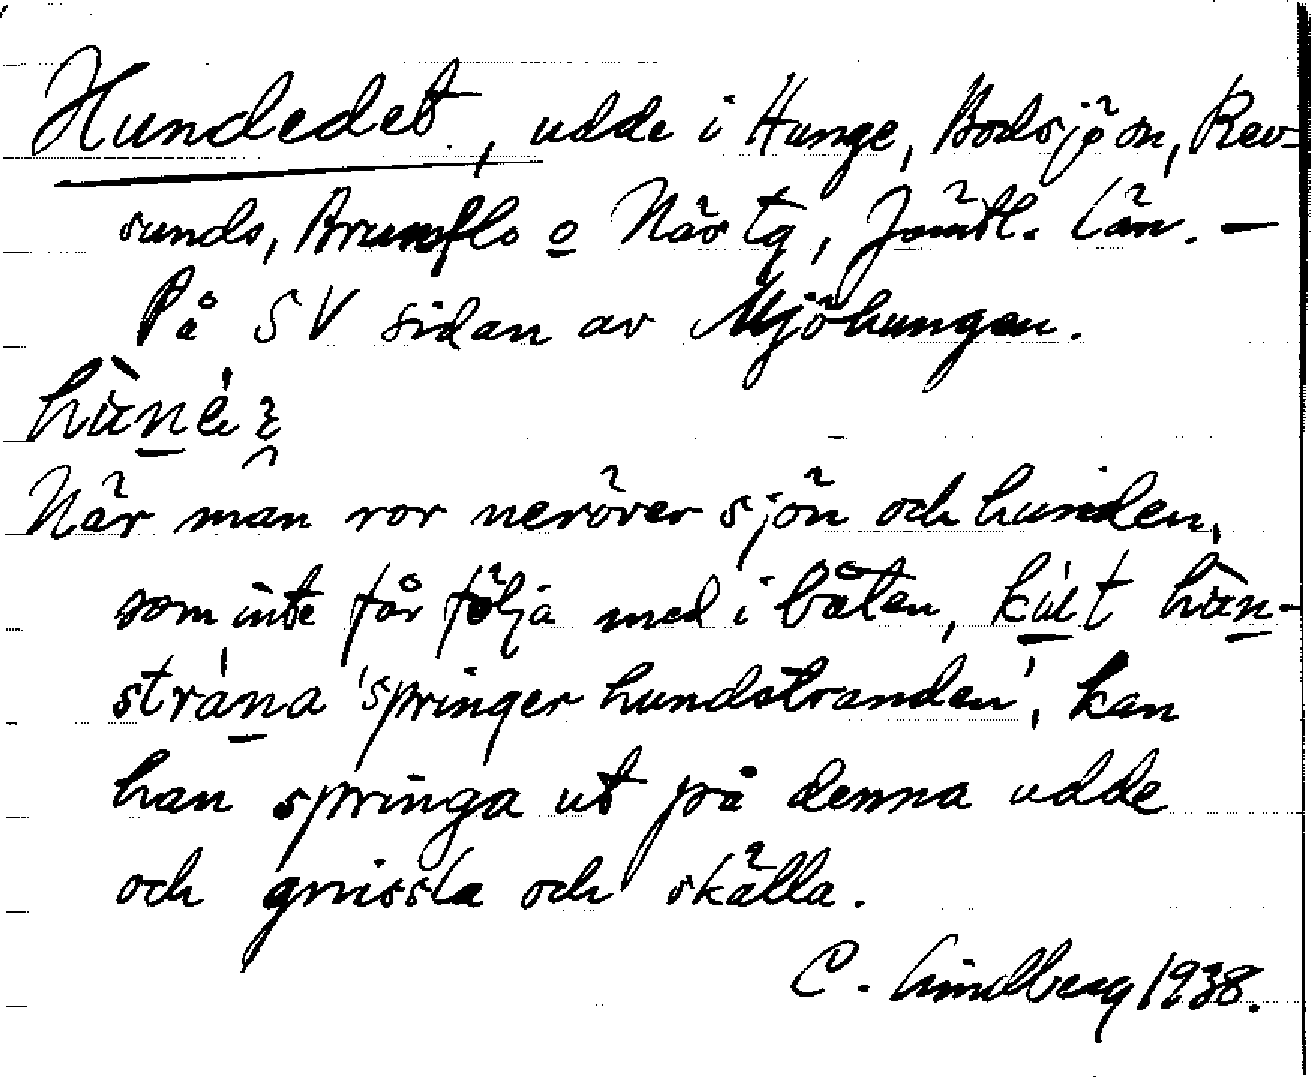 Hundedet, udde i Hunge, Bodsjön, Rev-
sunds, Brunflo o Näs tg, Jämtl. län. —
På SV sidan av Mjöhungen.
När man ror neröver sjön och hunden,
som inte får följa med i båten,
'springer hundstranden', kan
han springa ut på denna udde
och gnissla och skälla.
C. Lindberg 1938.